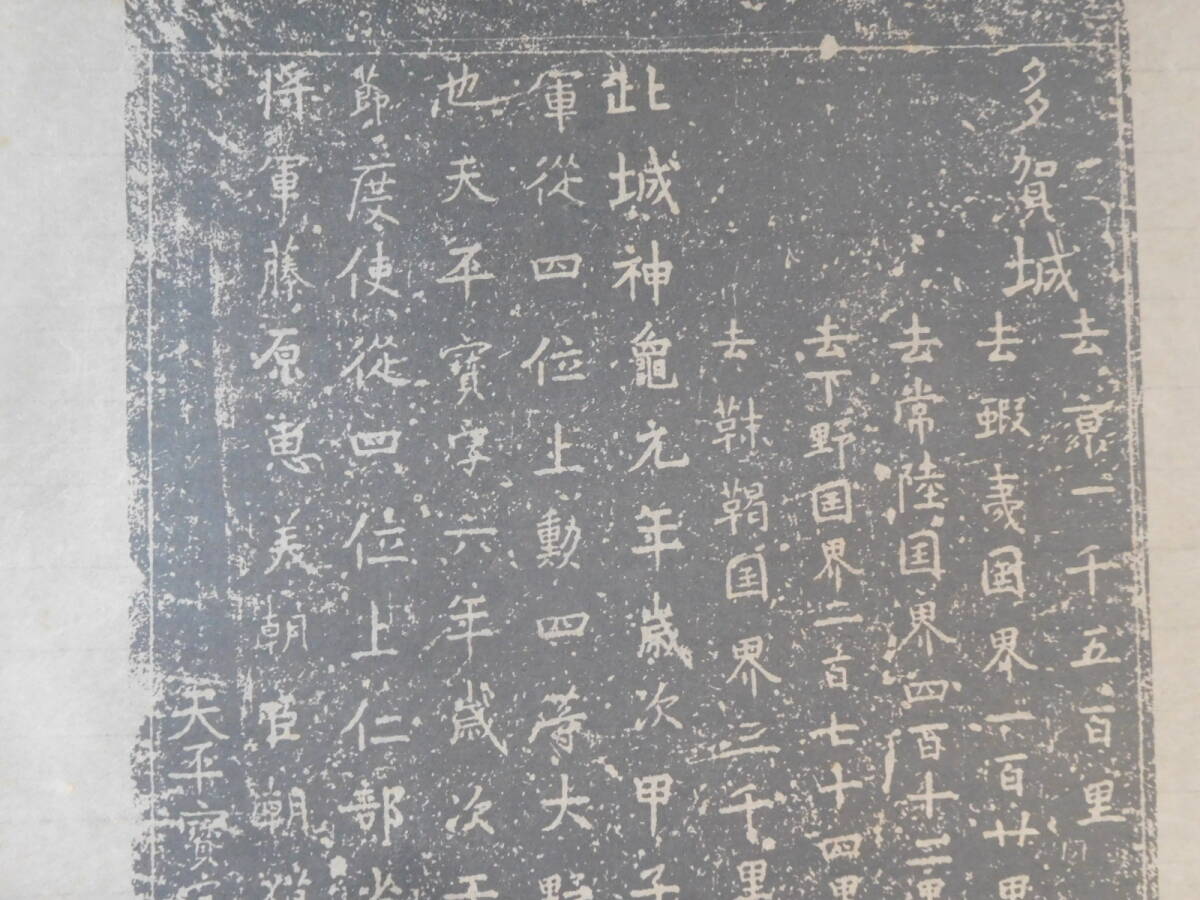 多賀城
去京一千五百里
去蝦夷国界一百廿里
去常陸国界四百十二里
去下野国界二百七十四里
去靺鞨国界三千里
此城神龜元年歳次甲子
軍從四位上勳四等大野
也天平寶字六年歳次壬
節度使從四位上仁部省
將軍藤原惠美朝臣朝獦
天平寶字